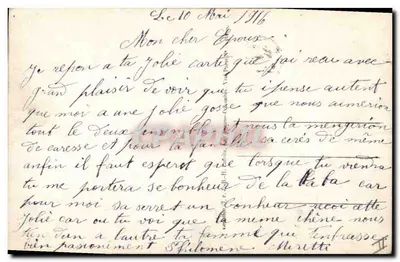 Le 10 Mai 1916
Mon cher Epoux
Je repon a ta Jolie carte que j'ai recu avec
grand plaisir de voir que tu ipense autent
que moi a une jolie gosse que nous aimerion
tout le deux ensemble nous la mengerion
de caresse et pour la famille sa cerés de même
anfin il faut esperot que lorsque tu viendra
tu me portera se bonheur de la Baba car
pour moi sa serret un bonheur
Jolie car ou tu voi que la meme chène nous
tien don a lautre ta femme qui tinfrasse
bien pasioniment Philomene Meretti
II